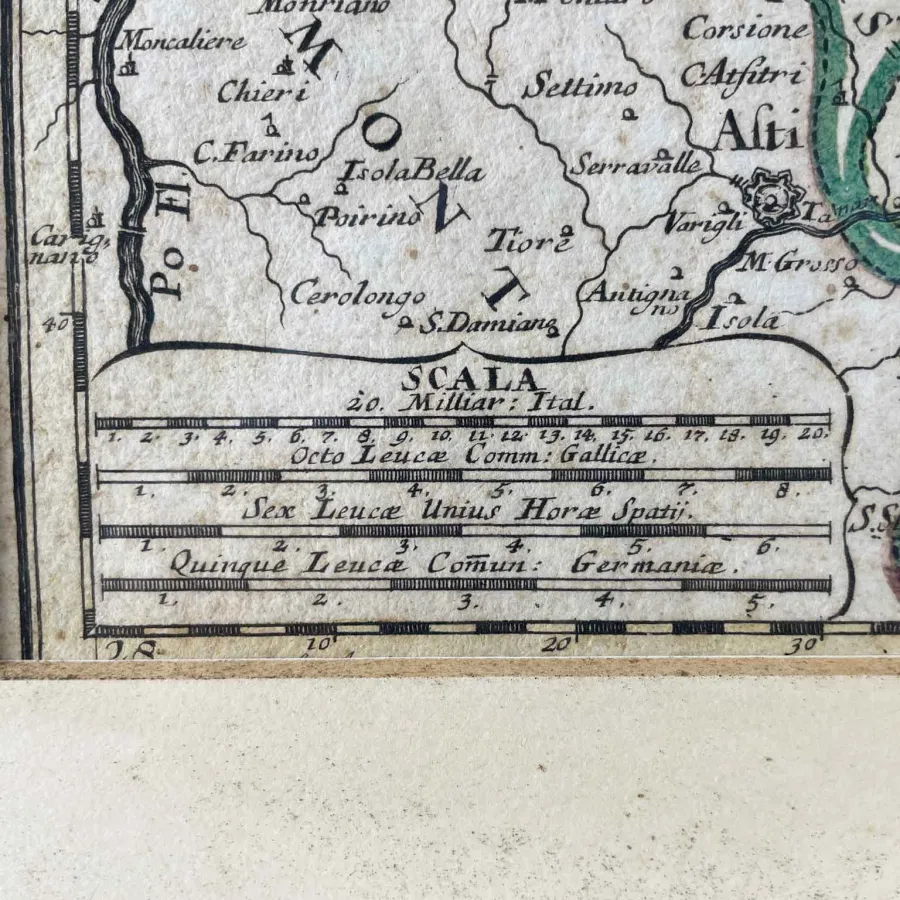 Monriano
Moncaliere
Corsione
Chieri
Settimo
C.Atſitri
Aſti
C. Farino
Isola Bella
Serravalle
M O N T
Poirino
Varigli
Carig,
nano
Tiore
Po Fl.
M. Grosso
Cerolongo
Antigna
no
S. Damiano
Isola
40
SCALA
20. Milliar: Ital.
1. 2. 3. 4. 5. 6. 7. 8. 9. 10. 11. 12. 13. 14. 15. 16. 17. 18. 19. 20.
Octo Leucæ Comm: Gallicæ.
1. 2. 3. 4. 5. 6. 7. 8.
Sex Leucæ Unius Horæ Spatij.
1. 2. 3. 4. 5. 6.
Quinque Leucæ Com̄un: Germaniæ.
1. 2. 3. 4. 5.
28 10 20 30